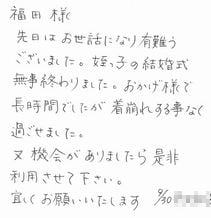 福田 様
先日はお世話になり有難う
ございました。姪っ子の結婚式
無事終わりました。おかげ様で
長時間でしたが着崩れする事なく
過ごせました。
又 機会がありましたら是非
利用させて下さい。
宜しくお願いいたします 9/30